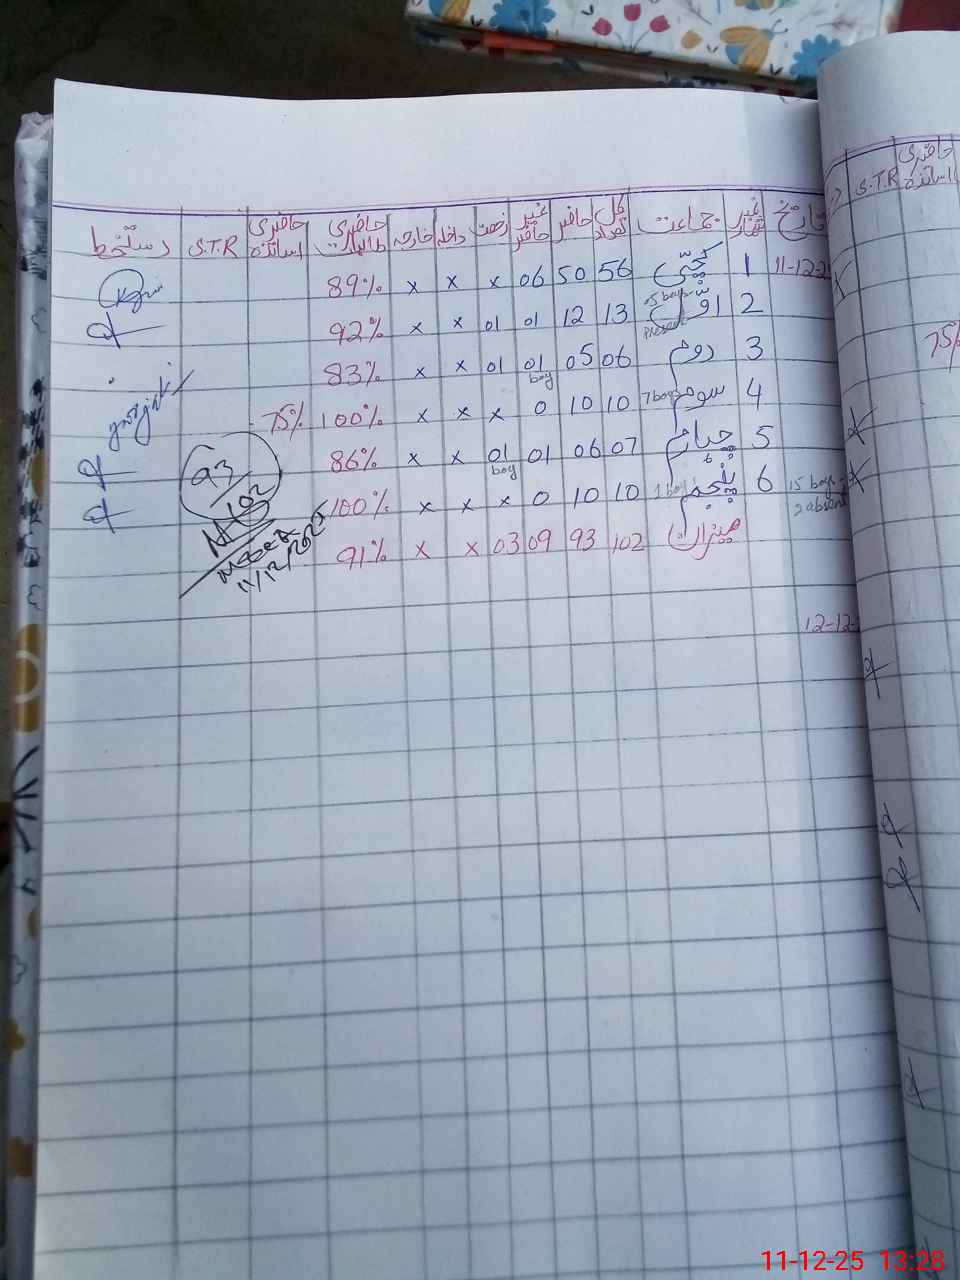 تاریخ نمبر شمار جماعت کل تعداد حاضر غیر حاضر رخصت داخلہ خارجہ حاضری طالبات حاضری اساتذہ S.T.R دستخط
11-12-2 1 کچّی 56 50 06 x x x 89%
2 اوّل 13 12 01 01 x x 92%
15 boys present
3 دوم 06 05 01 boy 01 x x 83%
4 سوم 7 boys 10 10 0 x x x 100% 75%
5 چہارم 07 06 01 01 boy x x 86%
6 پنجم 1 boy 10 10 0 x x x 100%
15 boys
2 absent
میزان 102 93 09 03 x x 91%
93
102
11/12/2025
12-12-2
S.T.R حاضری اساتذہ
75%
11-12-25 13:28